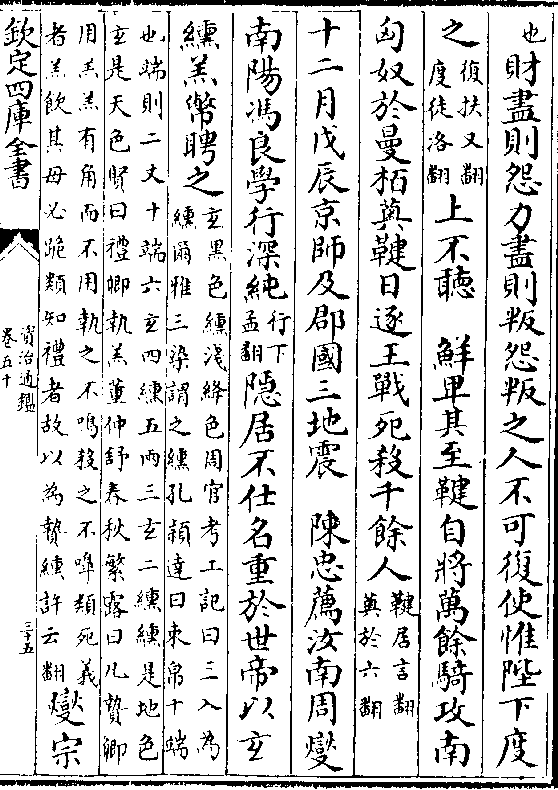 也財盡則怨力盡則叛怨叛之人不可復使惟陛下度
之復扶又翻度徒洛翻上不聽　鮮卑其至鞬自將萬餘騎攻南
匈奴於曼栢薁鞬日逐王戰死殺千餘人鞬居言翻薁於六翻
十二月戊辰京師及郡國三地震　陳忠薦汝南周燮
南陽馮良學行深純行下孟翻隱居不仕名重於世帝以玄
纁羔幣聘之玄黑色纁淺絳色周官考工記曰三入為
纁爾雅三染謂之纁孔穎達曰束帛十端
也端則二丈十端六玄四纁五兩三玄二纁纁是地色
玄是天色賢曰禮卿執羔董仲舒春秋繁露曰凡贄卿
用羔羔有角而不用執之不鳴殺之不嘷類死義
者羔飲其母必跪類知禮者故以為贄纁許云翻燮宗
欽定四庫全書
資治通鑑
卷五十
三十五